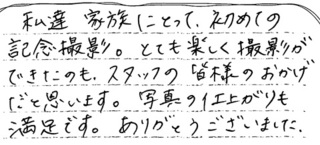 私達 家族にとって、初めての
記念撮影。とても楽しく撮影が
できたのも、スタッフの皆様のおかげ
だと思います。写真の仕上がりも
満足です。ありがとうございました。